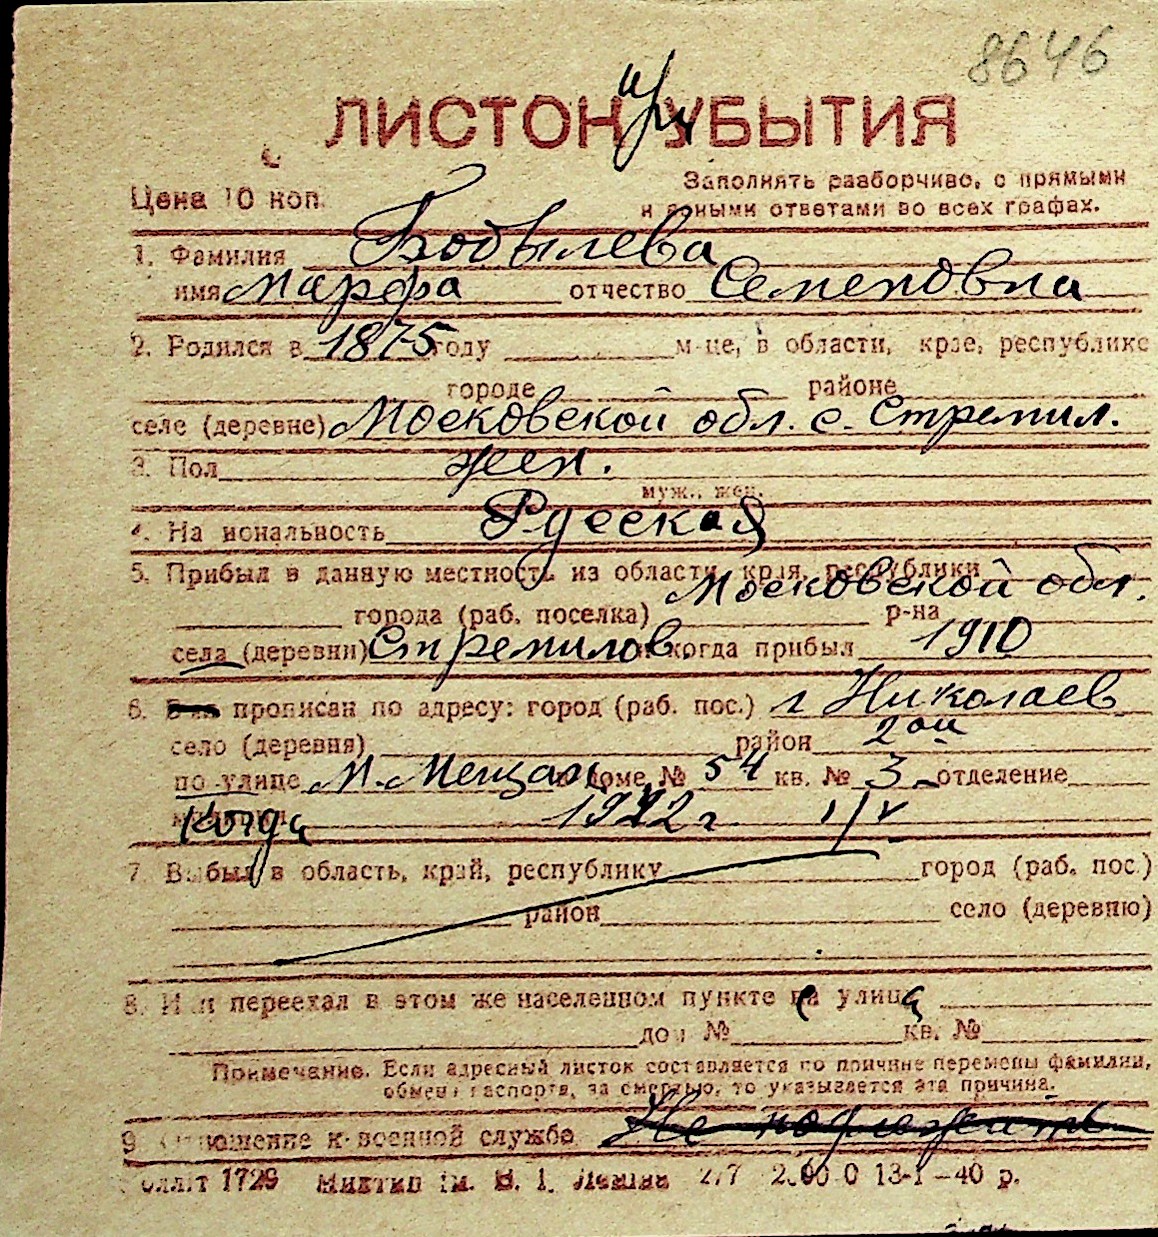 8646
ЛИСТОК при УБЫТИЯ
Цена 10 коп.
Заполнять разборчиво, с прямыми
и ясными ответами во всех графах.
1. Фамилия Бобылева
имя Марфа отчество Семеновна
2. Родился в 1875 году м-це, в области, крае, республике
городе районе
селе (деревне) Московской обл. с. Стремил.
3. Пол жен.
муж., жен.
4. Национальность Русская
5. Прибыл в данную местность из области, края, республики Московской обл.
города (раб. поселка) р-на
села (деревни) Стремилов. и когда прибыл 1910
6. прописан по адресу: город (раб. пос.) г Николаев
село (деревня) район 2ой
по улице М. Мещан. в доме № 54 кв. № 3 отделение
Когда 1942 г. 1/V
7. Выбыл в область, край, республику город (раб. пос.)
район село (деревню)
8. Или переехал в этом же населенном пункте с улицы
дом № кв. №
Примечание. Если адресный листок составляется по причине перемены фамилии,
обмена паспорта, за смертью, то указывается эта причина.
9. Отношение к военной службе Не подлежать
1729 им. В. І. Леніна 2/7 13-І—40 р.